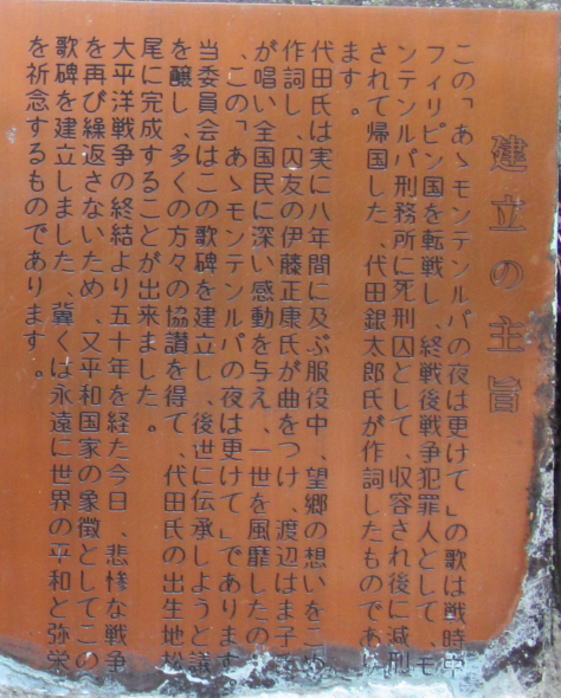 建立の主旨
この「あゝモンテンルパの夜は更けて」の歌は戦時中
フィリピン国を転戦し、終戦後戦争犯罪人として、モ
ンテンルパ刑務所に死刑囚として、収容され後に減刑
されて帰国した、代田銀太郎氏が作詞したものであり
ます。
代田氏は実に八年間に及ぶ服役中、望郷の想いをこめ
作詞し、囚友の伊藤正康氏が曲をつけ、渡辺はま子
が唱い全国民に深い感動を与え、一世を風靡したの
、この「あゝモンテンルパの夜は更けて」であります。
当委員会はこの歌碑を建立し、後世に伝承しようと議
を醸し、多くの方々の協讃を得て、代田氏の出生地松
尾に完成することが出来ました。
大平洋戦争の終結より五十年を経た今日、悲惨な戦争
を再び繰返さないため、又平和国家の象徴としてこの
歌碑を建立しました、冀くは永遠に世界の平和と弥栄
を祈念するものであります。